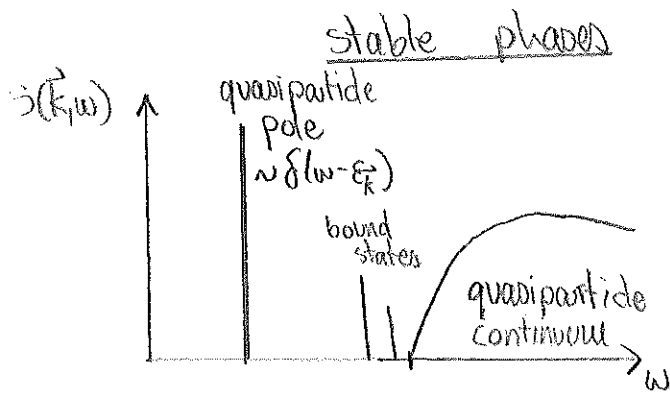 stable phases
(k⃗,ω)
quasiparticle
pole
~ δ(ω-ε_k⃗)
bound
states
quasiparticle
continuum
ω